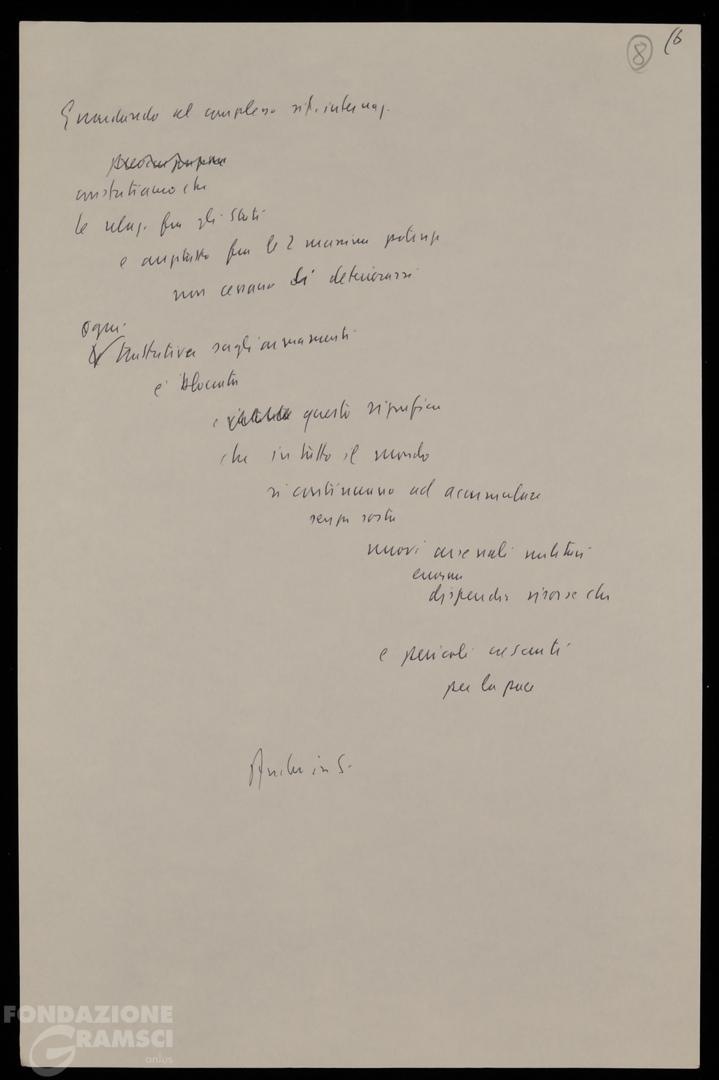 8
16
Guardando al complesso sit. internaz.
constatiamo che
le relaz. fra gli Stati
e anzitutto fra le 2 massime potenze
non cessano di deteriorarsi
ogni
trattativa sugli armamenti
è bloccata
e questo significa
che in tutto il mondo
si continuano ad accumulare
senza sosta
nuovi arsenali militari
enorme
dispendio risorse che
e pericoli crescenti
per la pace
Anche in S.
FONDAZIONE
GRAMSCI
onlus